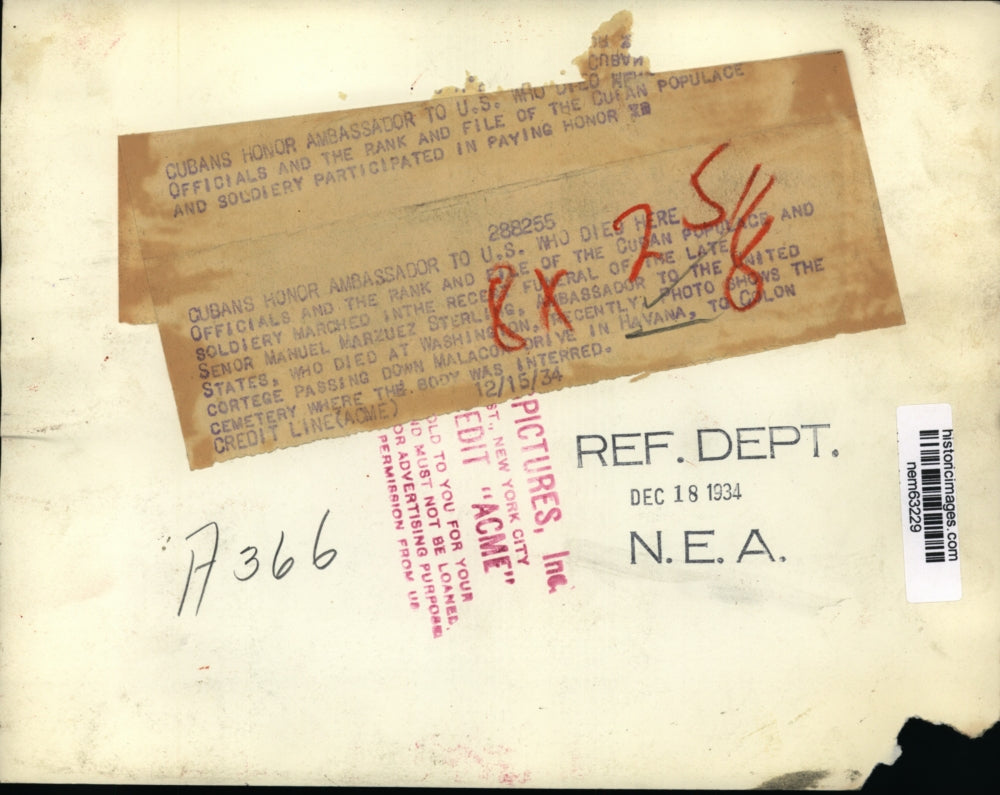 CUBAN
CUBANS HONOR AMBASSADOR TO U.S. WHO DIED
OFFICIALS AND THE RANK AND FILE OF THE CUBAN POPULACE
AND SOLDIERY PARTICIPATED IN PAYING HONOR
288255
CUBANS HONOR AMBASSADOR TO U.S. WHO DIED HERE
OFFICIALS AND THE RANK AND FILE OF THE CUBAN POPULACE AND
SOLDIERY MARCHED INTHE RECENT FUNERAL OF THE LATE
SENOR MANUEL MARZUEZ STERLING, AMBASSADOR TO THE UNITED
STATES, WHO DIED AT WASHINGTON, RECENTLY. PHOTO SHOWS THE
CORTEGE PASSING DOWN MALACON DRIVE IN HAVANA, TO COLON
CEMETERY WHERE THE BODY WAS INTERRED.
CREDIT LINE(ACME) 12/15/34
8X
2 5/8
PICTURES, Inc.
ST., NEW YORK CITY
EDIT "ACME"
OLD TO YOU FOR YOUR
ND MUST NOT BE LOANED,
OR ADVERTISING PURPOSES
PERMISSION FROM US
REF. DEPT.
DEC 18 1934
N. E. A.
A366
historicimages.com
nem63229